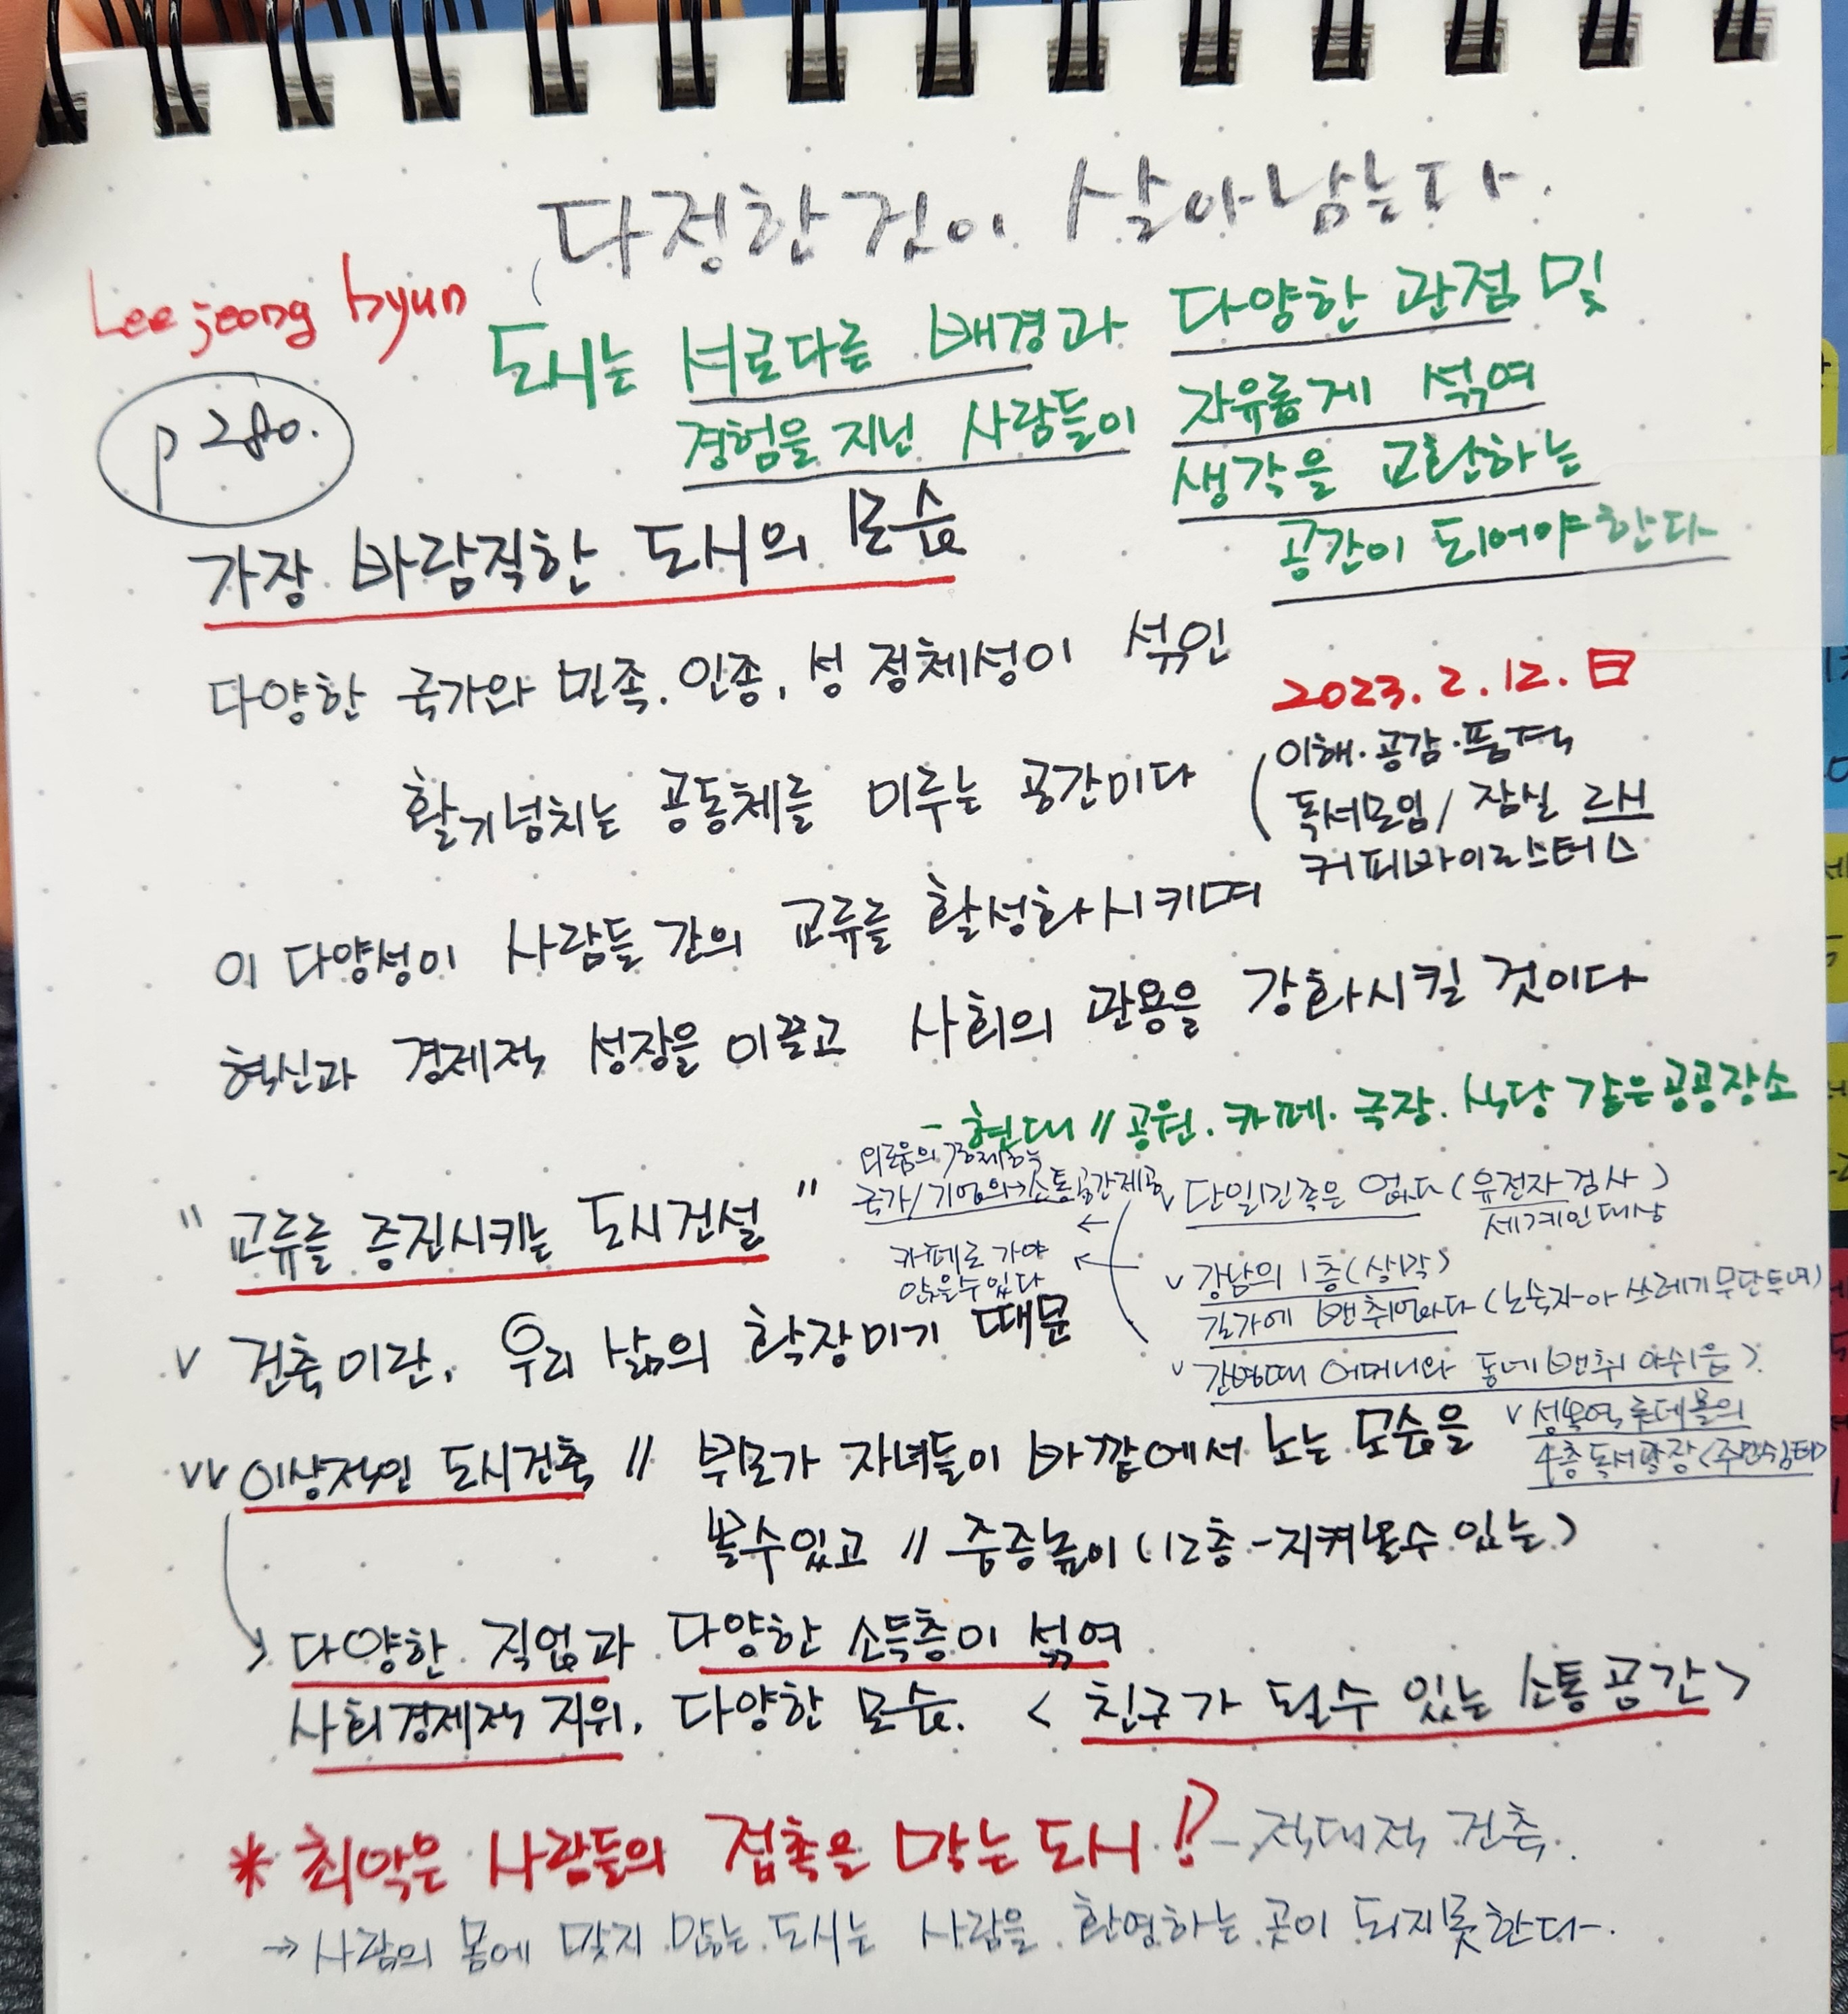 다정한 것이 살아남는다.
Lee jeong hyun
p 280.
도시는 서로다른 배경과 다양한 관점 및
경험을 지닌 사람들이 자유롭게 섞여
생각을 교환하는
공간이 되어야 한다
가장 바람직한 도시의 모습
다양한 국가와 민족. 인종, 성 정체성이 섞인
활기넘치는 공동체를 이루는 공간이다
2023. 2. 12. 日
이해·공감·품격
독서모임 / 잠실
커피바이로스터스
이 다양성이 사람들 간의 교류를 활성화시키며
혁신과 경제적 성장을 이끌고 사회의 관용을 강화시킬 것이다
- 현대 // 공원. 카페. 극장. 식당 같은 공공장소
" 교류를 증진시키는 도시건설 "
외로움의 경제학
국가/기업의 소통공간제공
카페로 가야
앉을수 있다
단일민족은 없다 (유전자 검사)
세계인대상
v 강남의 1층 (삼박)
길가에 벤취없다 (노숙자아 쓰레기 무단투여)
v 간병때 어머니와 동네 벤취 아쉬움>
v 성복역 롯데몰의
4층 독서광장 <주민쉼터>
v 건축이란, 우리 삶의 확장이기 때문
vv 이상적인 도시건축 // 부모가 자녀들이 바깥에서 노는 모습을
볼수있고 // 중층높이 (12층 - 지켜볼수 있는)
> 다양한 직업과 다양한 소득층이 섞여
사회경제적 지위, 다양한 모습. < 친구가 될수 있는 소통공간>
* 최악은 사람들의 접촉을 막는 도시!? - 적대적 건축.
→ 사람의 몸에 맞지 않는 도시는 사람을 환영하는 곳이 되지못한다.